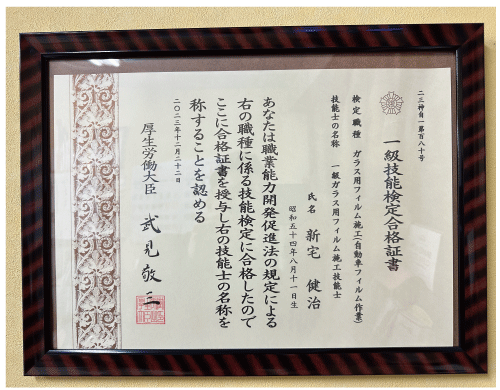 二三神自一第百八十号
一級技能検定合格証書
検定職種 ガラス用フィルム施工(自動車フィルム作業)
技能士の名称 一級ガラス用フィルム施工技能士
氏名 新宅 健治
昭和五十四年八月十一日生
あなたは職業能力開発促進法の規定による
右の職種に係る技能検定に合格したので
ここに合格証書を授与し右の技能士の名称を
称することを認める
二〇二三年十二月二十二日
厚生労働大臣 武見敬三